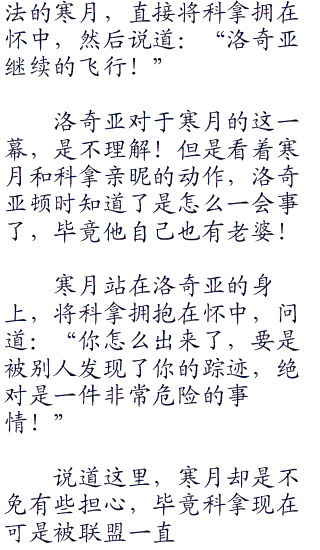 法的寒月，直接将科拿拥在
怀中，然后说道：“洛奇亚
继续的飞行！”
洛奇亚对于寒月的这一
幕，是不理解！但是看着寒
月和科拿亲昵的动作，洛奇
亚顿时知道了是怎么一会事
了，毕竟他自己也有老婆！
寒月站在洛奇亚的身
上，将科拿拥抱在怀中，问
道：“你怎么出来了，要是
被别人发现了你的踪迹，绝
对是一件非常危险的事
情！”
说道这里，寒月却是不
免有些担心，毕竟科拿现在
可是被联盟一直